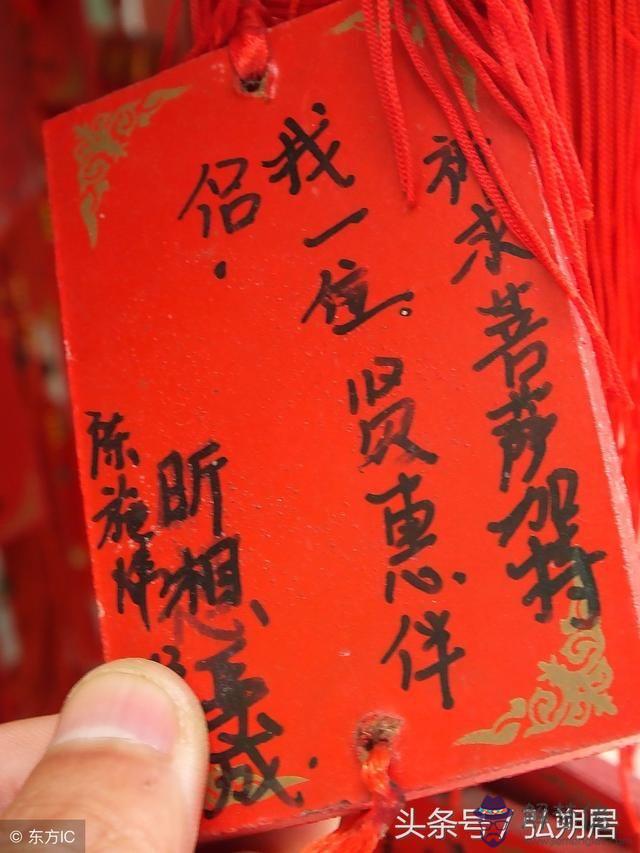 祈求菩萨加持
我一位贤惠伴
侣.
昕想事成.
陈施
© 东方IC
头条号 / 弘朔居